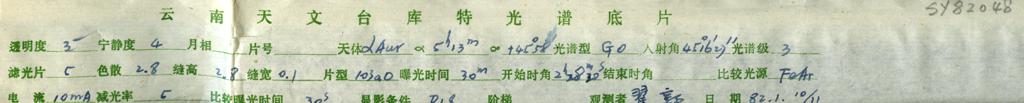 SY82048
云南天文台库特光谱底片
透明度 3 宁静度 4 月相 片号 天体 αAur α 5h13m α +45°58' 光谱型 G0 入射角 45°16'2" 光谱级 3
滤光片 5 色散 2.8 缝高 2.8 缝宽 0.1 片型 103aO 曝光时间 30m 开始时角 结束时角 比较光源 FeAr
电流 10mA 减光率 5 比较曝光时间 30s 显影条件 D19 阶梯 观测者 日期 82.1.10/11